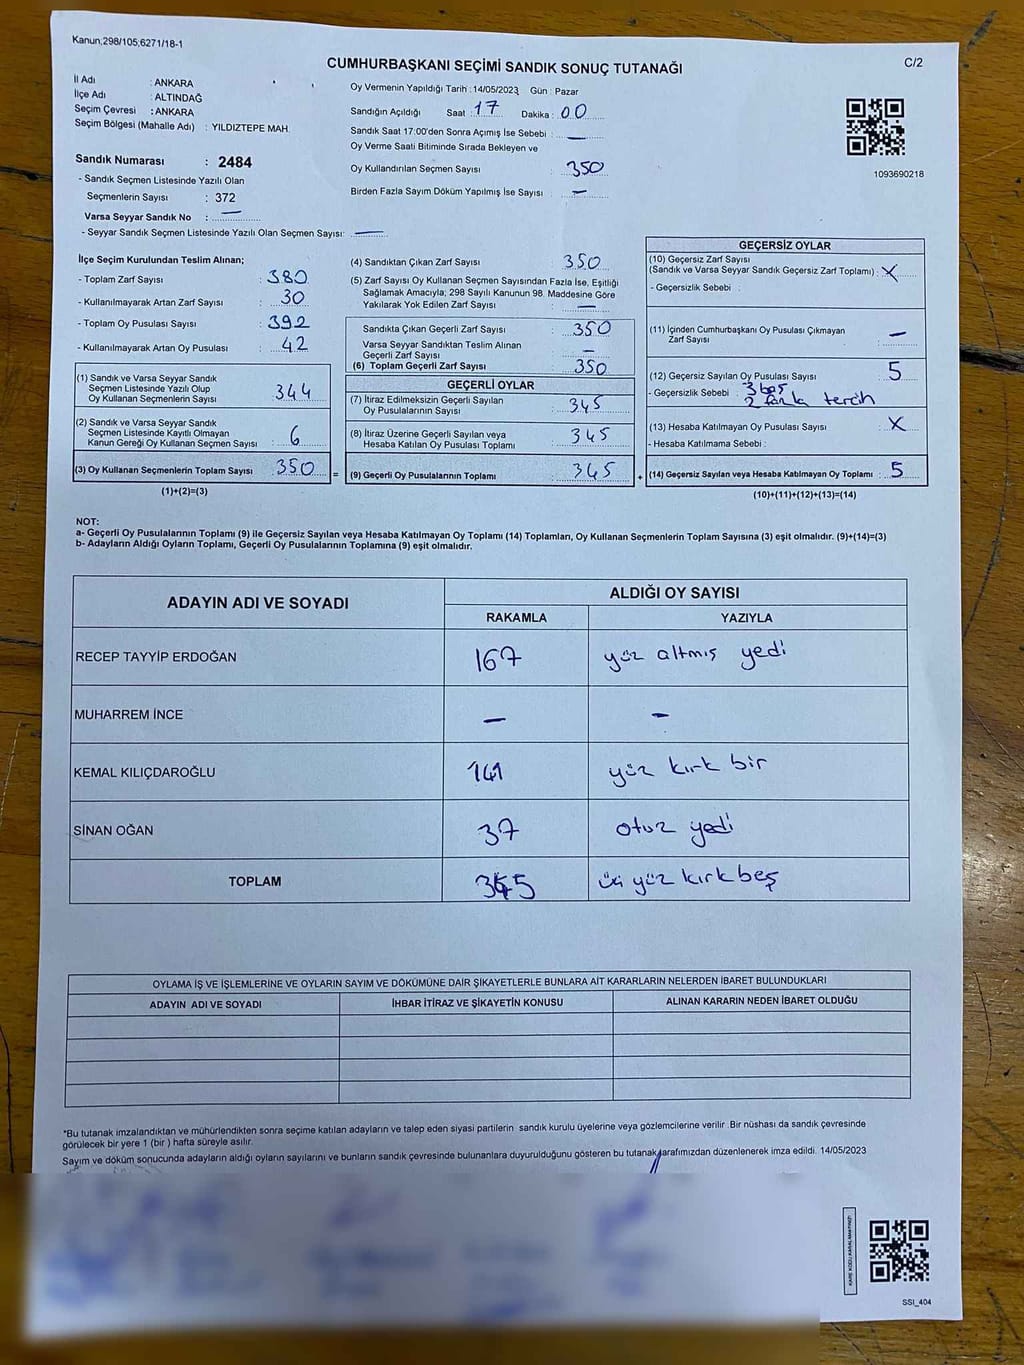 Kanun;298/105;6271/18-1
C/2
CUMHURBAŞKANI SEÇİMİ SANDIK SONUÇ TUTANAĞI
İl Adı : ANKARA
İlçe Adı : ALTINDAĞ
Seçim Çevresi : ANKARA
Seçim Bölgesi (Mahalle Adı) : YILDIZTEPE MAH.
Oy Vermenin Yapıldığı Tarih : 14/05/2023 Gün : Pazar
Sandığın Açıldığı Saat : 17 Dakika : 00
Sandık Saat 17:00'den Sonra Açımış İse Sebebi : —
Oy Verme Saati Bitiminde Sırada Bekleyen ve
Oy Kullandırılan Seçmen Sayısı : 350
Birden Fazla Sayım Döküm Yapılmış İse Sayısı : —
1093690218
Sandık Numarası : 2484
- Sandık Seçmen Listesinde Yazılı Olan
Seçmenlerin Sayısı : 372
Varsa Seyyar Sandık No : —
- Seyyar Sandık Seçmen Listesinde Yazılı Olan Seçmen Sayısı: —
İlçe Seçim Kurulundan Teslim Alınan;
- Toplam Zarf Sayısı : 380
- Kullanılmayarak Artan Zarf Sayısı : 30
- Toplam Oy Pusulası Sayısı : 392
- Kullanılmayarak Artan Oy Pusulası : 42
(1) Sandık ve Varsa Seyyar Sandık
Seçmen Listesinde Yazılı Olup
Oy Kullanan Seçmenlerin Sayısı : 344
(2) Sandık ve Varsa Seyyar Sandık
Seçmen Listesinde Kayıtlı Olmayan
Kanun Gereği Oy Kullanan Seçmen Sayısı : 6
(3) Oy Kullanan Seçmenlerin Toplam Sayısı : 350
(1)+(2)=(3)
(4) Sandıktan Çıkan Zarf Sayısı : 350
(5) Zarf Sayısı Oy Kullanan Seçmen Sayısından Fazla İse, Eşitliği
Sağlamak Amacıyla; 298 Sayılı Kanunun 98. Maddesine Göre
Yakılarak Yok Edilen Zarf Sayısı : —
Sandıkta Çıkan Geçerli Zarf Sayısı : 350
Varsa Seyyar Sandıktan Teslim Alınan
Geçerli Zarf Sayısı : —
(6) Toplam Geçerli Zarf Sayısı : 350
GEÇERLİ OYLAR
(7) İtiraz Edilmeksizin Geçerli Sayılan
Oy Pusulalarının Sayısı : 345
(8) İtiraz Üzerine Geçerli Sayılan veya
Hesaba Katılan Oy Pusulası Toplamı : 345
= (9) Geçerli Oy Pusulalarının Toplamı : 345
GEÇERSİZ OYLAR
(10) Geçersiz Zarf Sayısı
(Sandık ve Varsa Seyyar Sandık Geçersiz Zarf Toplamı) : X
- Geçersizlik Sebebi :
(11) İçinden Cumhurbaşkanı Oy Pusulası Çıkmayan
Zarf Sayısı : —
(12) Geçersiz Sayılan Oy Pusulası Sayısı : 5
- Geçersizlik Sebebi : 3 boş
2 fazla tercih
(13) Hesaba Katılmayan Oy Pusulası Sayısı : X
- Hesaba Katılmama Sebebi :
+ (14) Geçersiz Sayılan veya Hesaba Katılmayan Oy Toplamı : 5
(10)+(11)+(12)+(13)=(14)
NOT:
a- Geçerli Oy Pusulalarının Toplamı (9) ile Geçersiz Sayılan veya Hesaba Katılmayan Oy Toplamı (14) Toplamları, Oy Kullanan Seçmenlerin Toplam Sayısına (3) eşit olmalıdır. (9)+(14)=(3)
b- Adayların Aldığı Oyların Toplamı, Geçerli Oy Pusulalarının Toplamına (9) eşit olmalıdır.
ADAYIN ADI VE SOYADI ALDIĞI OY SAYISI
RAKAMLA YAZIYLA
RECEP TAYYİP ERDOĞAN 167 yüz altmış yedi
MUHARREM İNCE — —
KEMAL KILIÇDAROĞLU 141 yüz kırk bir
SİNAN OĞAN 37 otuz yedi
TOPLAM 345 üç yüz kırk beş
OYLAMA İŞ VE İŞLEMLERİNE VE OYLARIN SAYIM VE DÖKÜMÜNE DAİR ŞİKAYETLERLE BUNLARA AİT KARARLARIN NELERDEN İBARET BULUNDUKLARI
ADAYIN ADI VE SOYADI İHBAR İTİRAZ VE ŞİKAYETİN KONUSU ALINAN KARARIN NEDEN İBARET OLDUĞU
*Bu tutanak imzalandıktan ve mühürlendikten sonra seçime katılan adayların ve talep eden siyasi partilerin sandık kurulu üyelerine veya gözlemcilerine verilir .Bir nüshası da sandık çevresinde
görülecek bir yere 1 (bir ) hafta süreyle asılır.
Sayım ve döküm sonucunda adayların aldığı oyların sayılarını ve bunların sandık çevresinde bulunanlara duyurulduğunu gösteren bu tutanak tarafımızdan düzenlenerek imza edildi. 14/05/2023
SSI_404